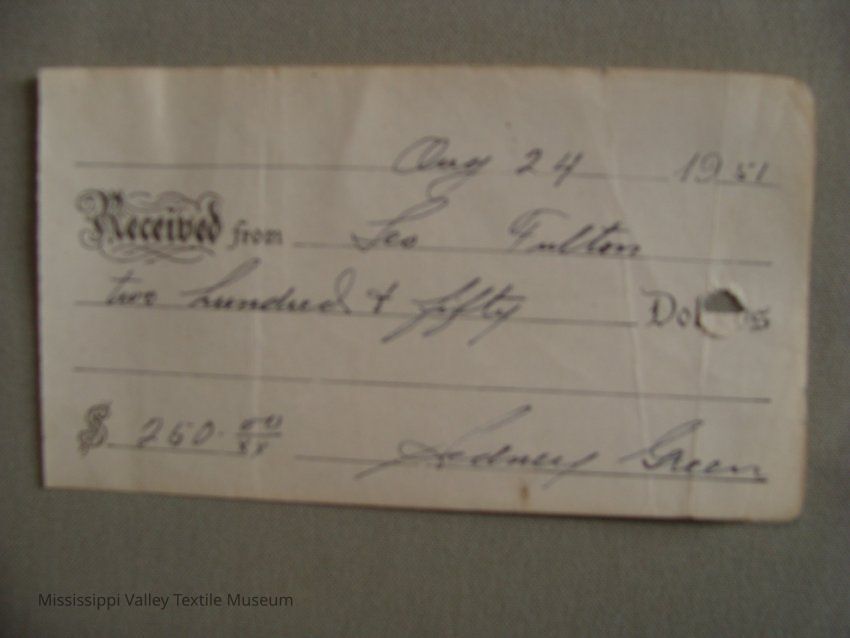 Aug 24 1951
Received from Leo Fulton
two hundred & fifty Dol s
$ 250.00/xx Sedney Green
Mississippi Valley Textile Museum